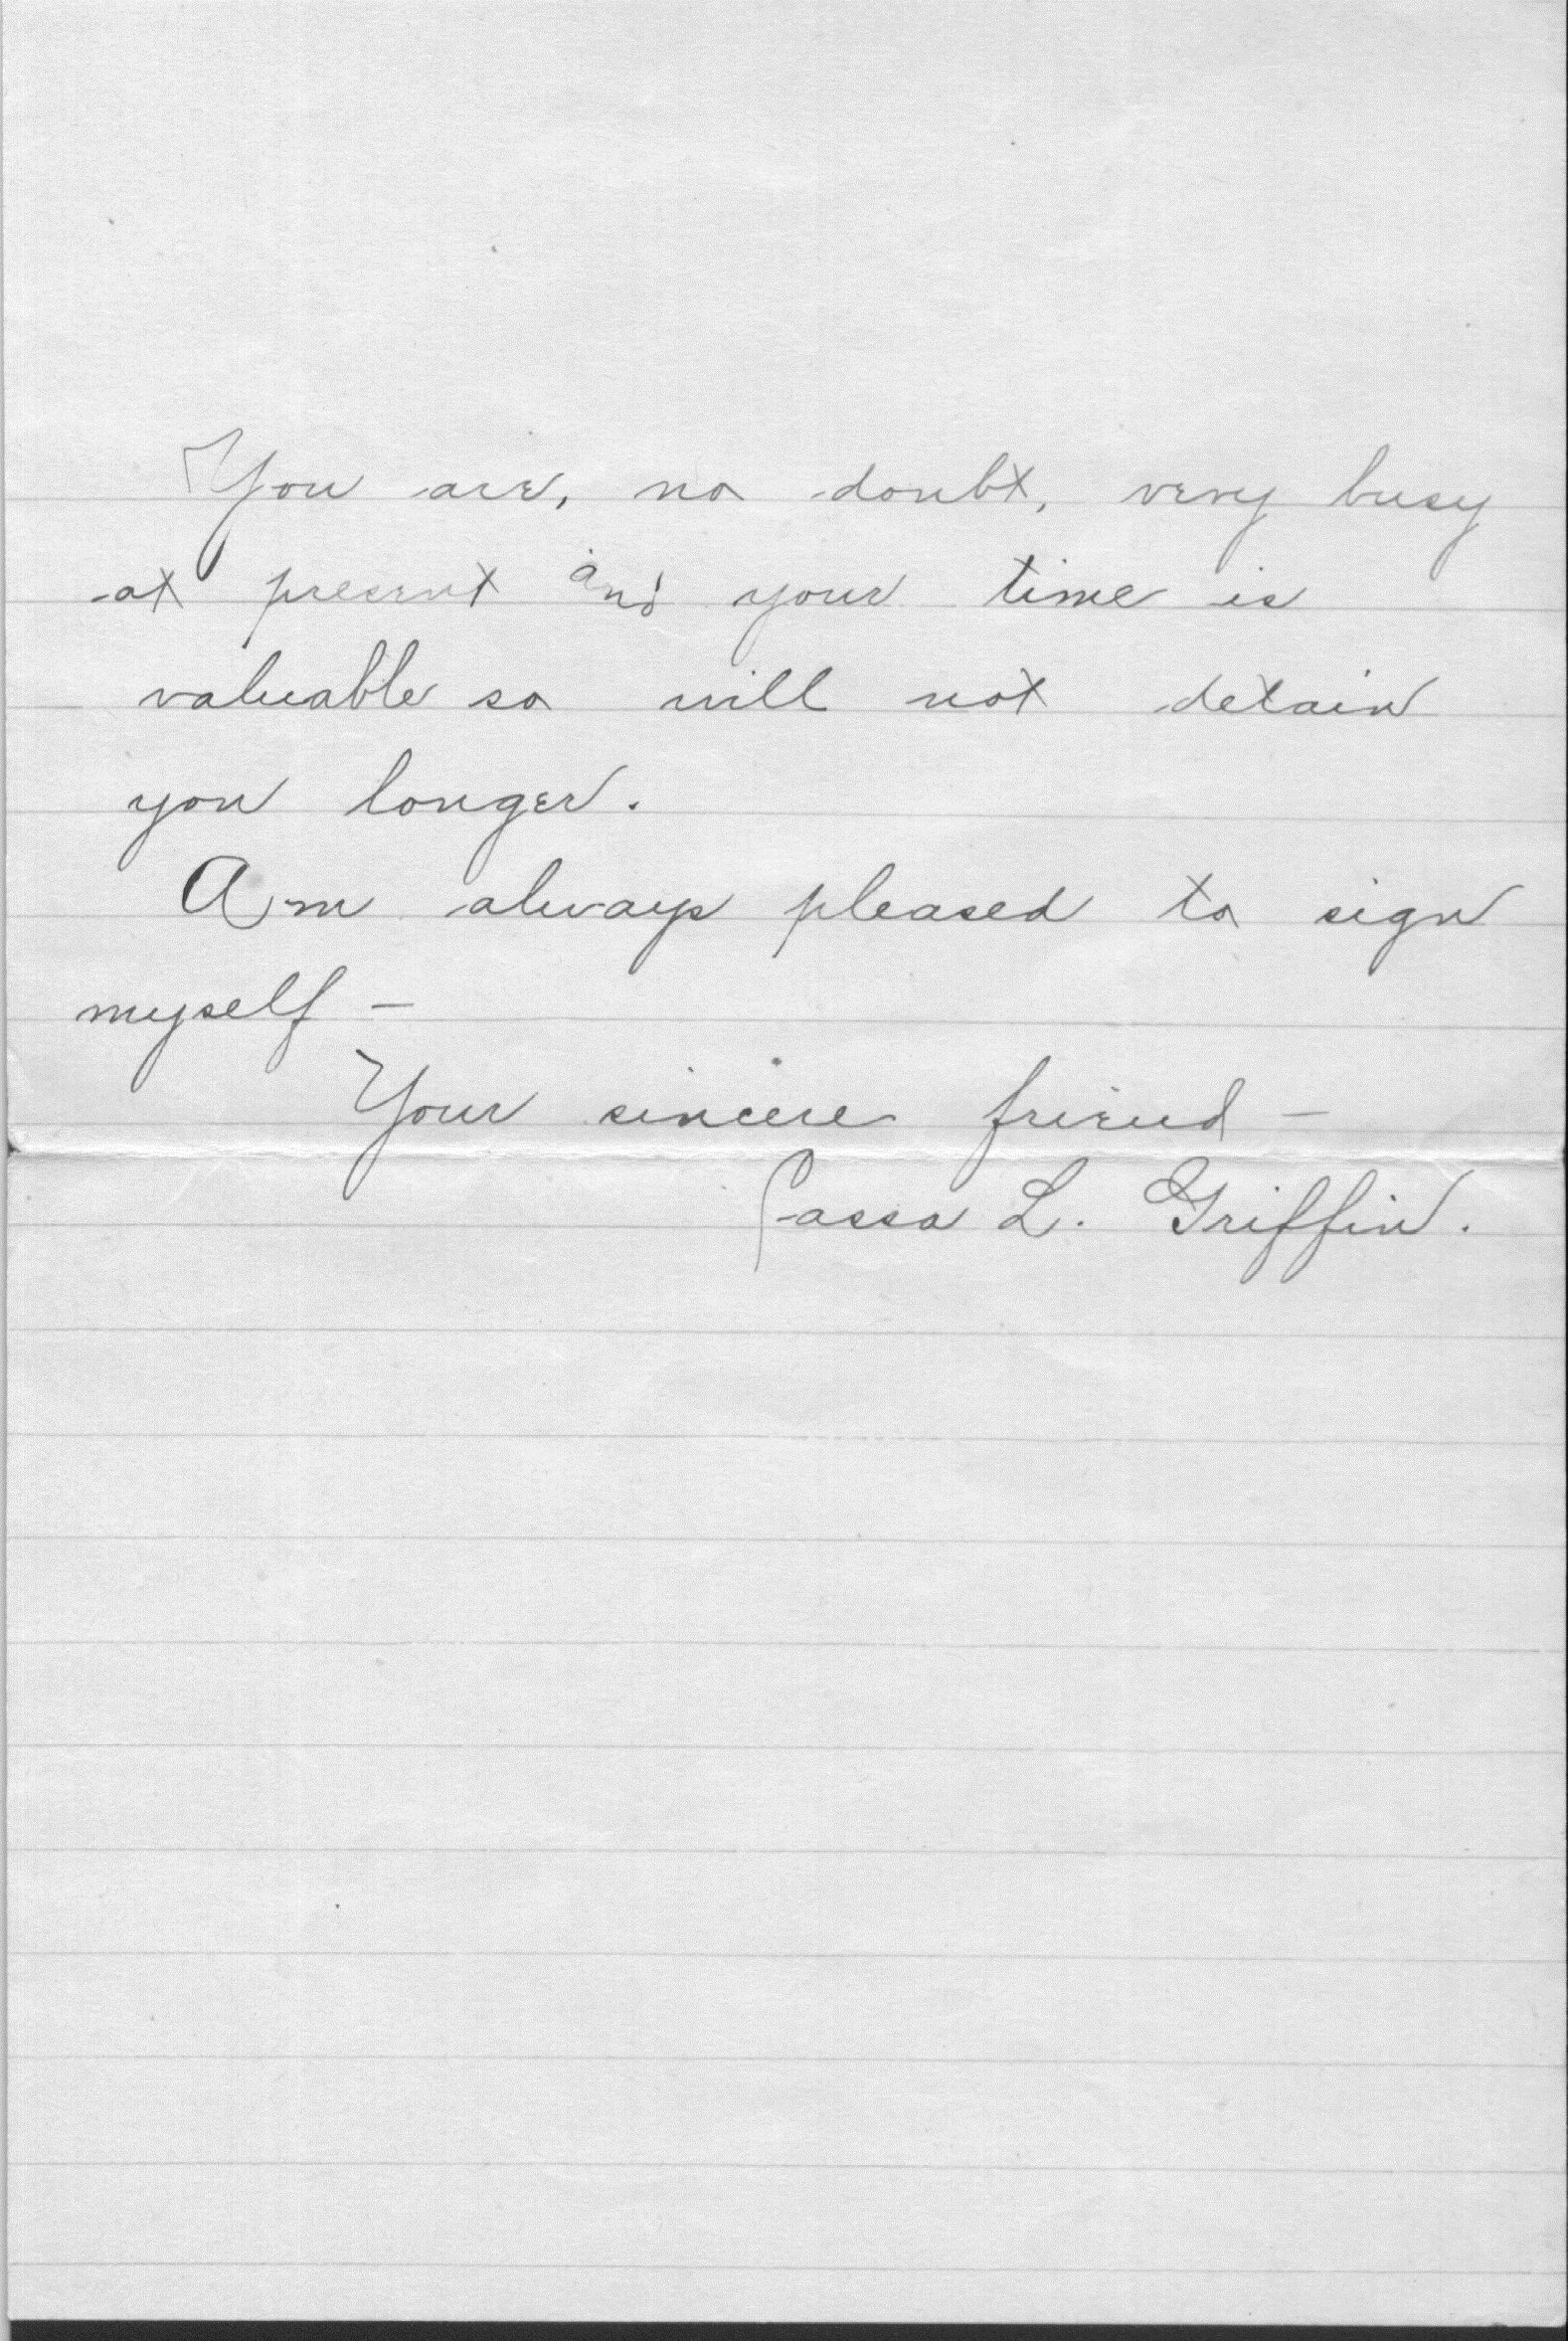 You are, no doubt, very busy
at present and your time is
valuable so will not detain
you longer.
Am always pleased to sign
myself –
Your sincere friend –
Cassa L. Griffin.